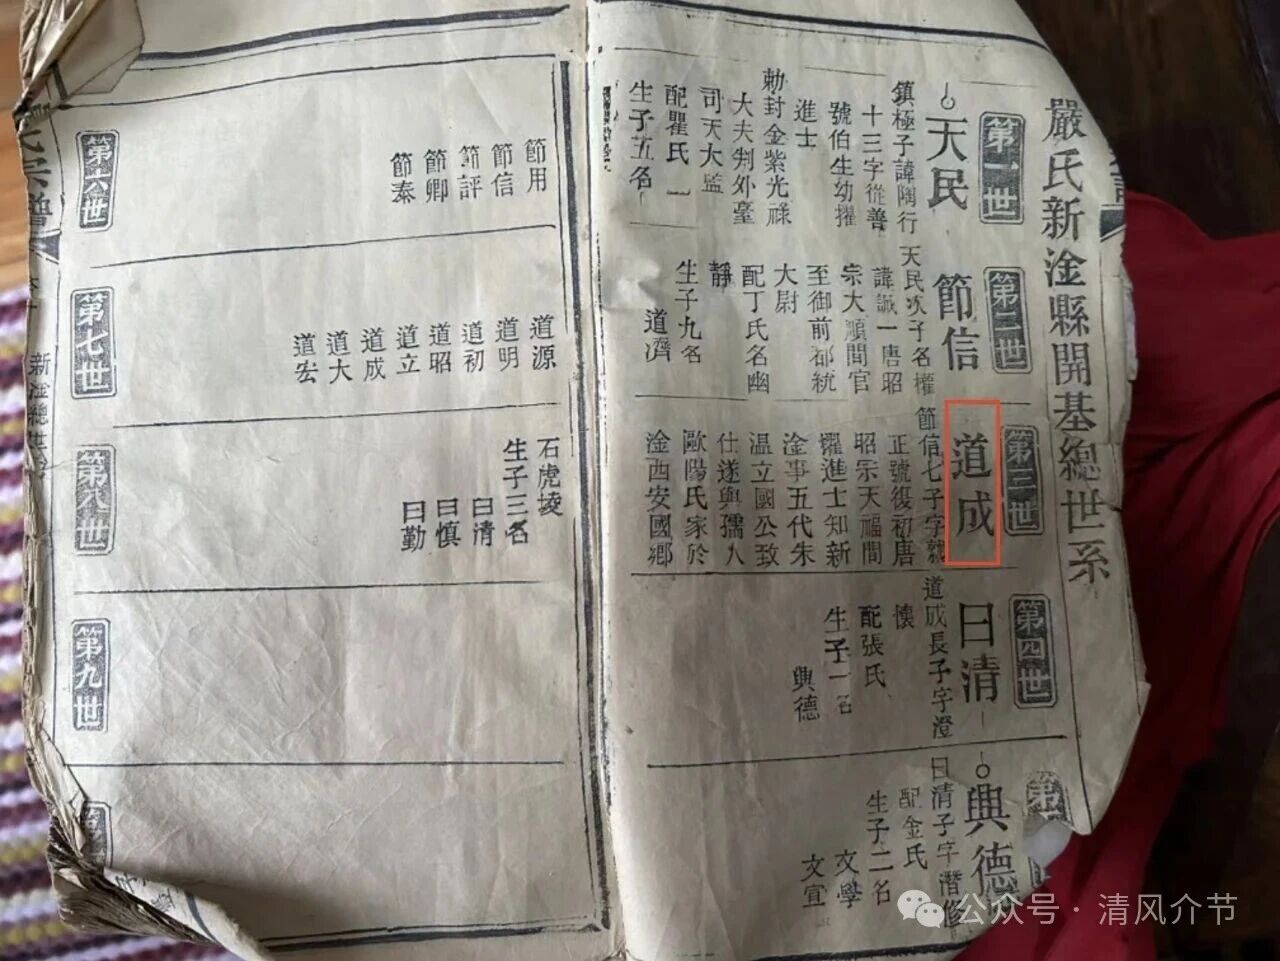 嚴氏新淦縣開基總世系
第一世
天民
鎮極子諱陶行
十三字從善
號伯生幼擢
進士
勅封金紫光祿
大夫判外臺
司天大監
配瞿氏一
生子五名
第二世
節信
天民次子名權
諱誠一唐昭
宗大順間官
至御前都統
大尉
配丁氏名幽
靜
生子九名
道濟
第三世
道成
節信七子字就
正號復初唐
昭宗天福間
擢進士知新
淦事五代朱
温立國公致
仕遂與孺人
歐陽氏家於
淦西安國鄉
第四世
曰清
道成長子字澄
懷
配張氏
生子一名
興德
第
興德
曰清子字潛修
配金氏
生子二名
文學
文宣
第六世
節用
節信
節評
節卿
節秦
第七世
道源
道明
道初
道昭
道立
道成
道大
道宏
第八世
石虎堎
生子三名
曰清
曰慎
曰勤
第九世
氏宗譜
新淦總世
公众号·清风介节